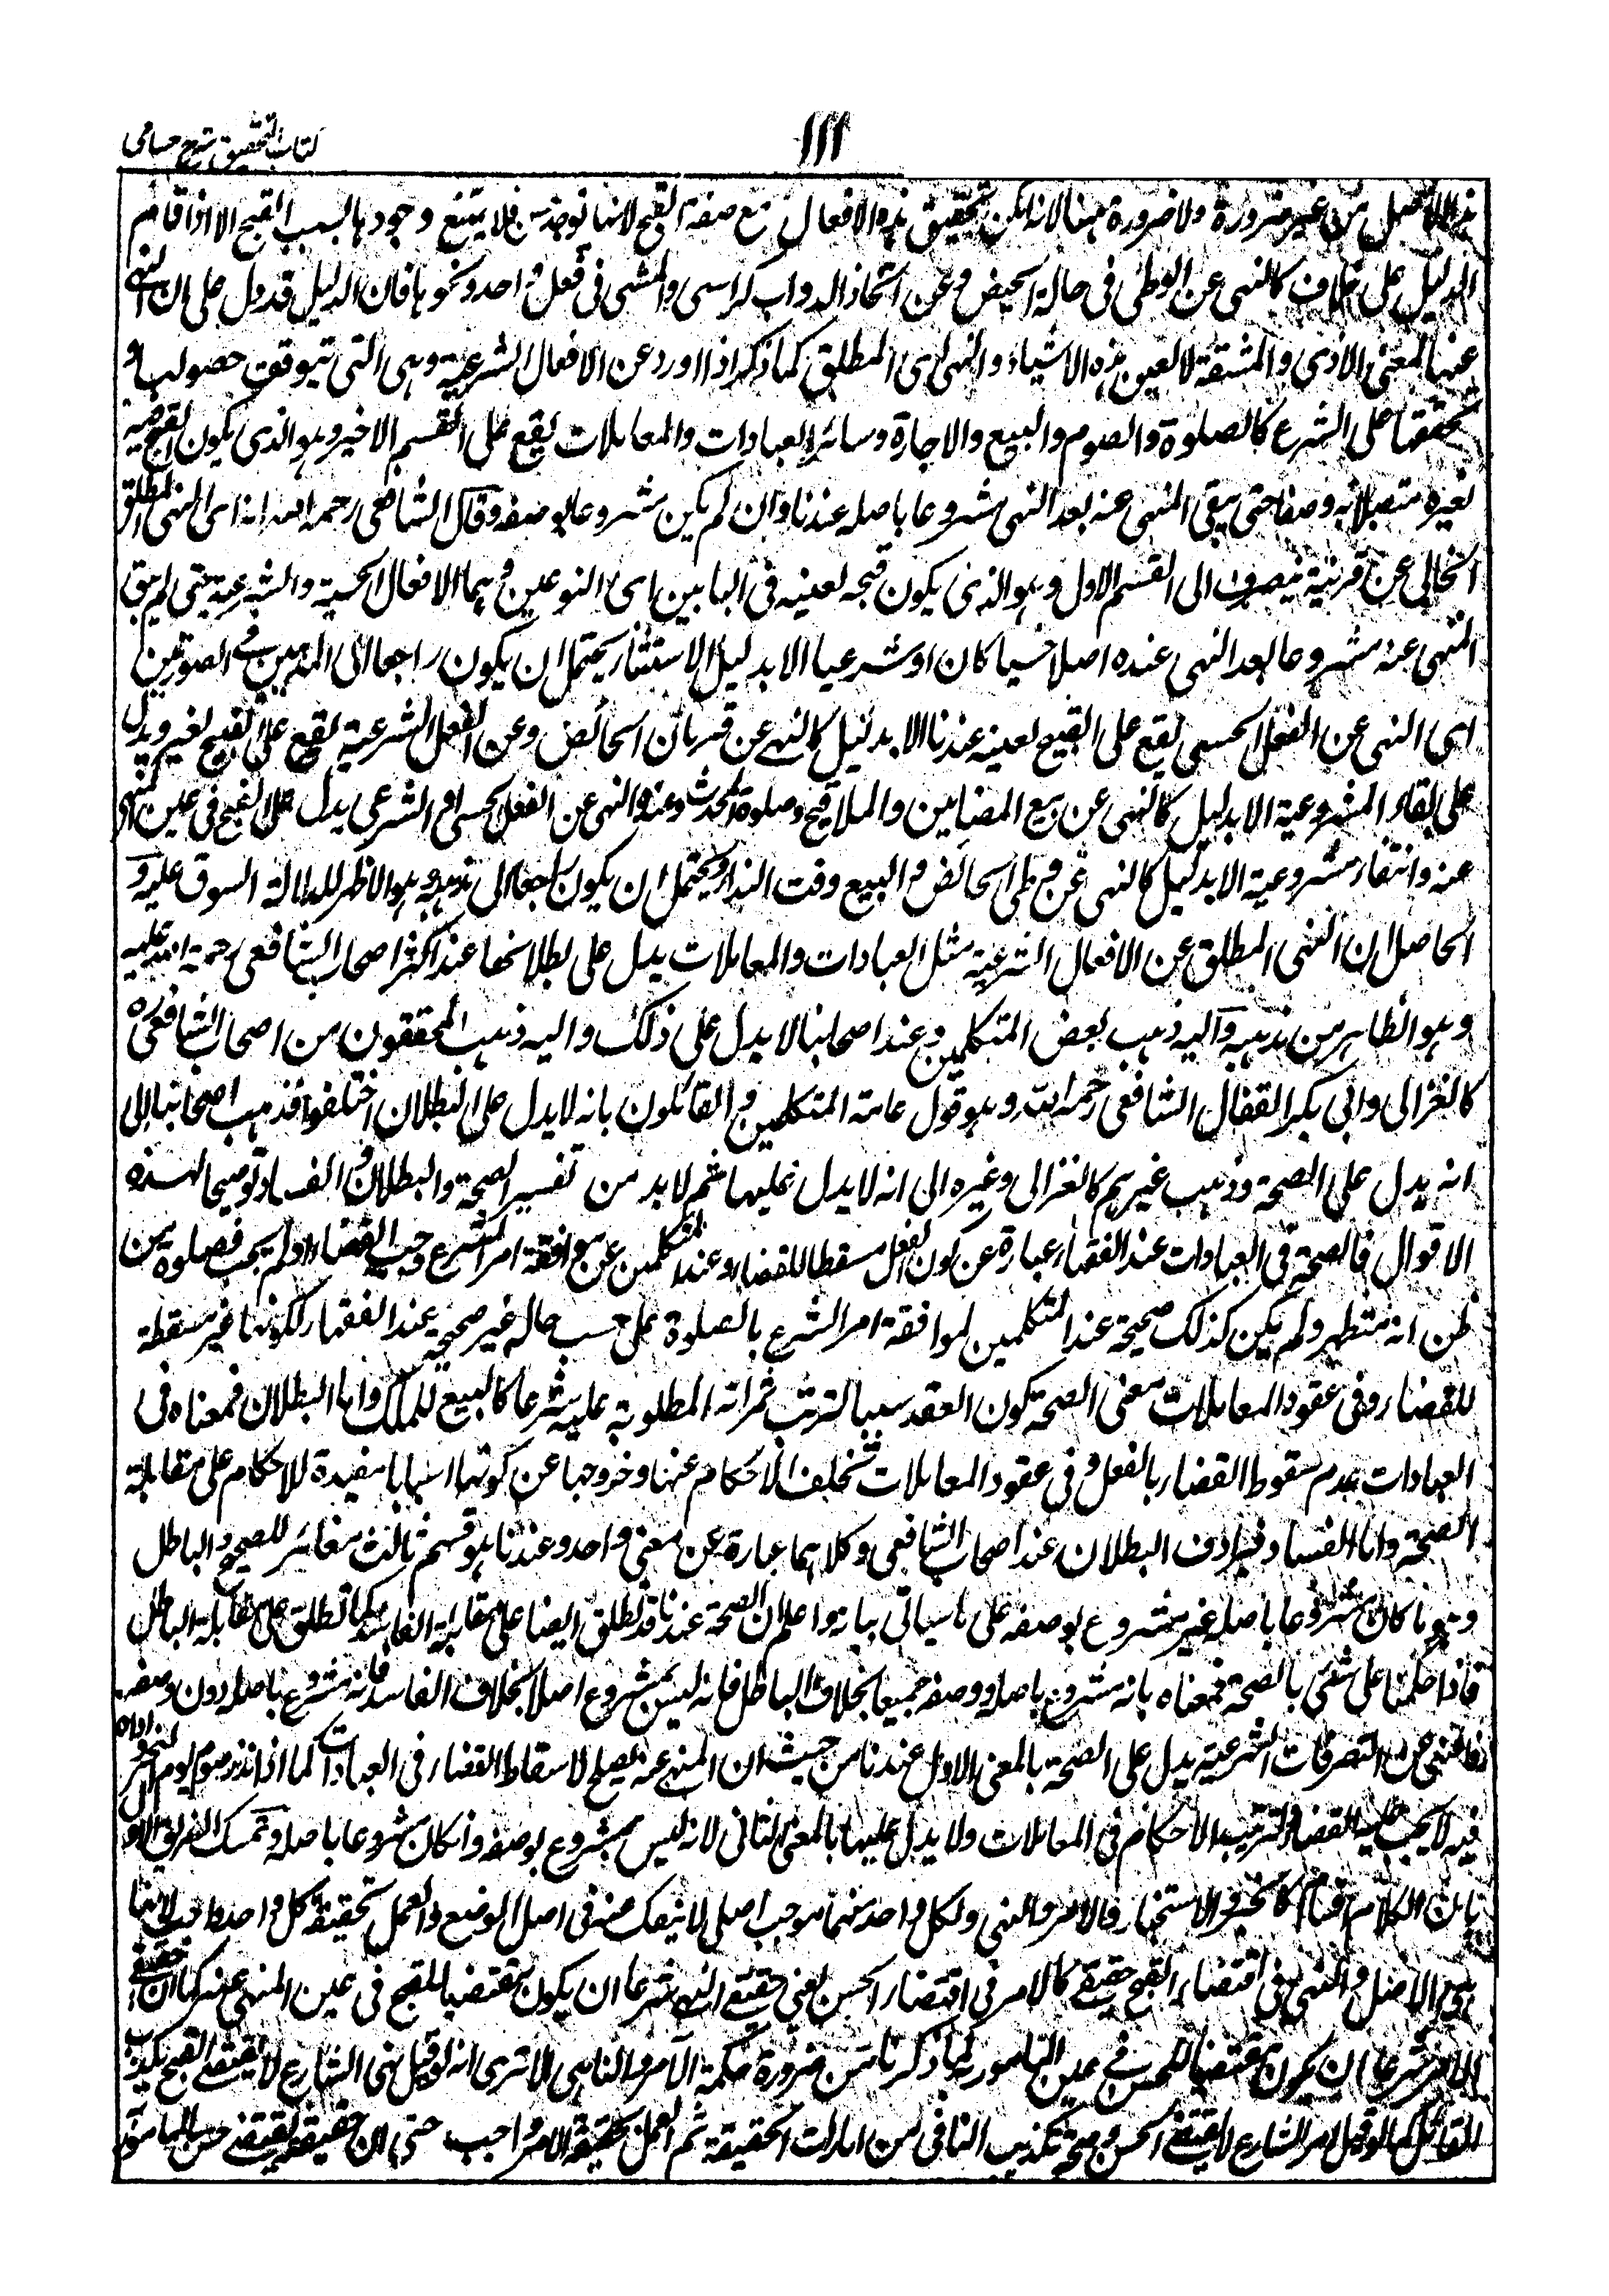 كتاب التحقيق شرح حسامى
١١١
هذا الاصل من غير ضرورة ولا ضرورة ههنا لانه امكن تحقيق هذه الافعال مع صفة القبح لانها توجد حسا فلا يمتنع وجودها بسبب القبح الا اذا قام
الدليل على خلافه كالنهى عن الوطى فى حالة الحيض وعن اتخاذ الدواب كراسى والمشى فى نعل واحد ونحوها فان الدليل قد دل على ان النهى
عنها لمعنى الاذى والمشقة لا لعين هذه الاشياء والنهى اى المطلق كما ذكر اذا اورد عن الافعال الشرعية وهى التى تتوقف حصولها و
تحققها على الشرع كالصلوة والصوم والبيع والاجارة وسائر العبادات والمعاملات يقع على القسم الاخير وهو الذى يكون لقبح فيه
لغيره متصلا به وصفا حتى يبقى المنهى عنه بعد النهى مشروعا باصله عندنا وان لم يكن مشروعا بوصفه وقال الشافعى رحمه الله انه اى النهى المطلق
الخالى عن قرينة ينصرف الى القسم الاول وهو الذى يكون قبحه لعينه فى البابين اى النوعين وهما الافعال الحسية والشرعية حتى لم يبق
المنهى عنه مشروعا بعد النهى عنده اصلا حسيا كان او شرعيا الا بدليل الاستثناء يحتمل ان يكون راجعا الى المذهبين فى الصورتين
اى النهى عن الفعل الحسى يقع على القبيح لعينه عندنا الا بدليل كالنهى عن قربان الحائض وعن الفعل الشرعية يقع على القبيح لغيره ويدل
على بقاء المشروعية الا بدليل كالنهى عن بيع المضامين والملاقيح وصلوة المحدث وعنده النهى عن الفعل الحسى او الشرعى يدل على القبح فى عين المنهى
عنه وانتفاء مشروعية الا بدليل كالنهى عن وطى الحائض والبيع وقت النداء ويحتمل ان يكون راجعا الى مذهبه وهو الاظهر لدلالة السوق عليه و
الحاصل ان النهى المطلق عن الافعال الشرعية مثل العبادات والمعاملات يدل على بطلانها عند اكثر اصحاب الشافعى رحمة الله عليه
وهو الظاهر من مذهبه واليه ذهب بعض المتكلمين وعند اصحابنا لا يدل على ذلك واليه ذهب المحققون من اصحاب الشافعى ره
كالغزالى وابى بكر القفال الشافعى رحمه الله وهو قول عامة المتكلمين والقائلون بانه لا يدل على البطلان اختلفوا فذهب اصحابنا الى
انه يدل على الصحة وذهب غيرهم كالغزالى وغيره الى انه لا يدل عليها ثم لا بد من تفسير الصحة والبطلان والفساد توضيحا لهذه
الاقوال فالصحة فى العبادات عند الفقهاء عبارة عن كون الفعل مسقطا للقضاء وعند المتكلمين عن موافقة امر الشرع وجب القضاء او لم يجب فصلوة من
ظن انه متطهر ولم يكن كذلك صحيحة عند المتكلمين لموافقة امر الشرع بالصلوة على حسب حاله غير صحيحة عند الفقهاء لكونها غير مسقطة
للقضاء وفى عقود المعاملات معنى الصحة كون العقد سببا لترتب ثمراته المطلوبة عليه شرعا كالبيع للملك واما البطلان فمعناه فى
العبادات عدم سقوط القضاء بالفعل وفى عقود المعاملات تخلف الاحكام عنها وخروجها عن كونها اسبابا مفيدة للاحكام على مقابلة
الصحة واما الفساد فيرادف البطلان عند اصحاب الشافعى وكلاهما عبارة عن معنى واحد وعندنا هو قسم ثالث مغائر للصحيح والباطل
وهو ما كان مشروعا باصله غير مشروع بوصفه على ما سياتى بيانه واعلم ان الصحة عندنا قد تطلق ايضا على مقابلة الفاسد كما تطلق على مقابلة الباطل
فاذا حكمنا على شئ بالصحة فمعناه بانه مشروع باصله ووصفه جميعا بخلاف الباطل فانه ليس بمشروع اصلا بخلاف الفاسد فانه مشروع باصله دون وصفه
فالنهى عن التصرفات الشرعية يدل على الصحة بالمعنى الاول عندنا من حيث ان المنهى عنه يصلح لاسقاط القضاء فى العبادات كما اذا نذر صوم يوم النحر واداه
فيه لا يجب عليه القضاء ولترتيب الاحكام فى المعاملات ولا يدل عليها بالمعنى الثانى لانه ليس بمشروع بوصفه وان كان مشروعا باصله وتمسك الفريق الاول
بان الكلام اقسام كالخبر والاستخبار والامر والنهى ولكل واحد منهما موجب اصلى لا ينفك عنه فى اصل الوضع والعمل بحقيقة كل واحد واجب لانها
هى الاصل والنهى فى اقتضاء القبح حقيقة كالامر فى اقتضاء الحسن يعنى حقيقة النهى شرعا ان يكون مقتضيا للقبح فى عين المنهى عنه كما ان حقيقة
الامر شرعا ان يكون مقتضيا للحسن فى عين المامور به لما ذكرنا من ضرورة حكمة الآمر والناهى الا ترى انه لو قيل نهى الشارع لا يقتضى القبح يكذب
القائل كما لو قيل امر الشارع لا يقتضى الحسن وصحة تكذيب النافى من امارات الحقيقة ثم العمل بحقيقة الامر واجب حتى ان حقيقة يقتضى حسن المامور